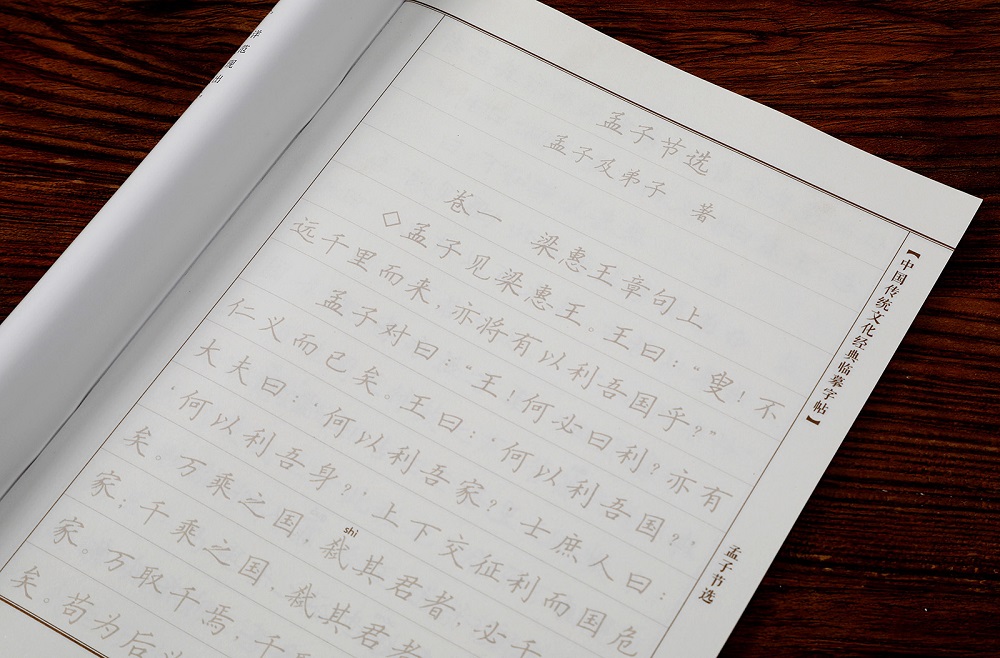 孟子节选
孟子及弟子 著
卷一 梁惠王章句上
◇孟子见梁惠王。王曰：“叟！不
远千里而来，亦将有以利吾国乎？”
孟子对曰：“王！何必曰利？亦有
仁义而已矣。王曰：‘何以利吾国？’
大夫曰：‘何以利吾家？’士庶人曰：
‘何以利吾身？’上下交征利而国危
shì
矣。万乘之国，弑其君者，必千
家；千乘之国，弑其君者
家。万取千焉，千
矣。苟为后
【中国传统文化经典临摹字帖】
孟子节选